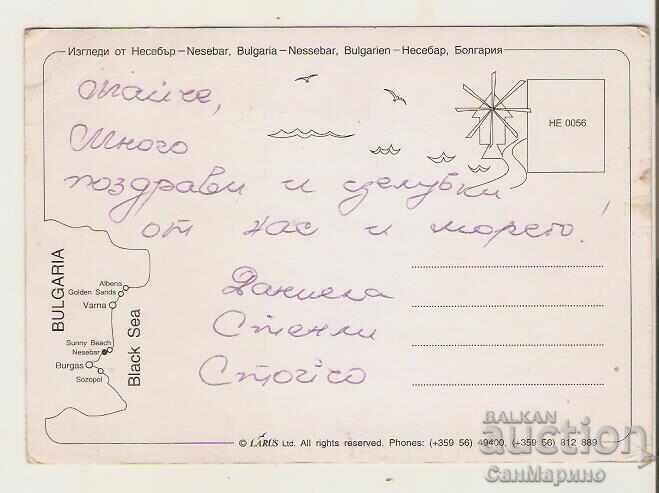 Изгледи от Несебър – Nesebar, Bulgaria – Nessebar, Bulgarien – Несебар, Болгария
HE 0056
Майче,
Много
поздрави и целувки
от нас и морето!
Даниела
Стенли
Стойчо
BULGARIA
Black Sea
Albena
Golden Sands
Varna
Sunny Beach
Nesebar
Burgas
Sozopol
© LARUS Ltd. All rights reserved. Phones: (+359 56) 49400, (+359 56) 812 889
BALKAN
auction
СанМарино